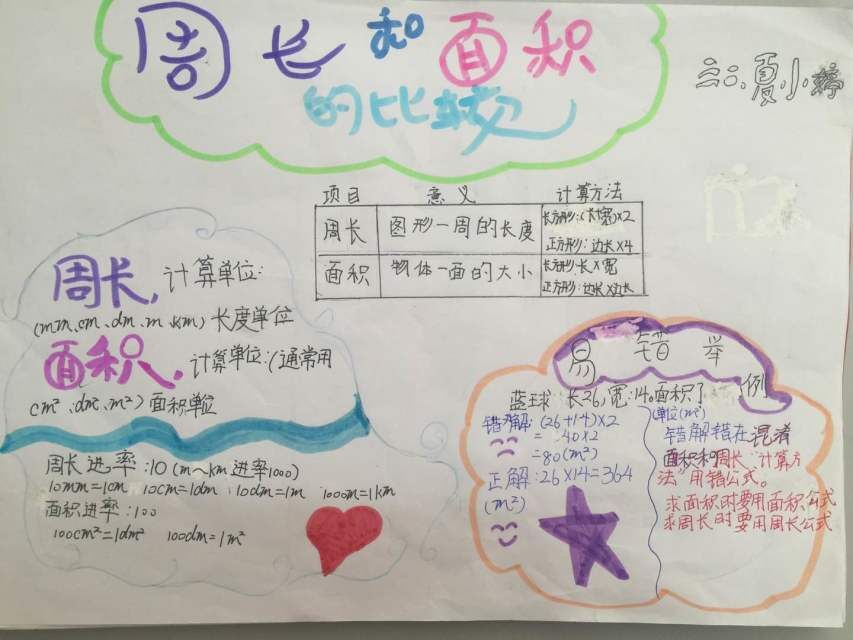 周长和面积
的比较
三二、夏小婷
项目 意义 计算方法
周长 图形一周的长度 长方形:(长+宽)×2
正方形:边长×4
面积 物体一面的大小 长方形:长×宽
正方形:边长×边长
周长,计算单位:
(mm、cm、dm、m、km)长度单位
面积,计算单位:(通常用
cm²、dm²、m²)面积单位
周长进率:10(m~km进率1000)
10mm=1cm 10cm=1dm 10dm=1m 1000m=1km
面积进率:100
100cm²=1dm² 100dm=1m²
易错举例
蓝球 长26,宽:14。面积?
单位(m²)
错解:(26+14)×2
=40×2
=80(m²)
正解:26×14=364
(m²)
错解错在混淆
面积和周长计算方
法,用错公式。
求面积时要用面积公式
求周长时要用周长公式